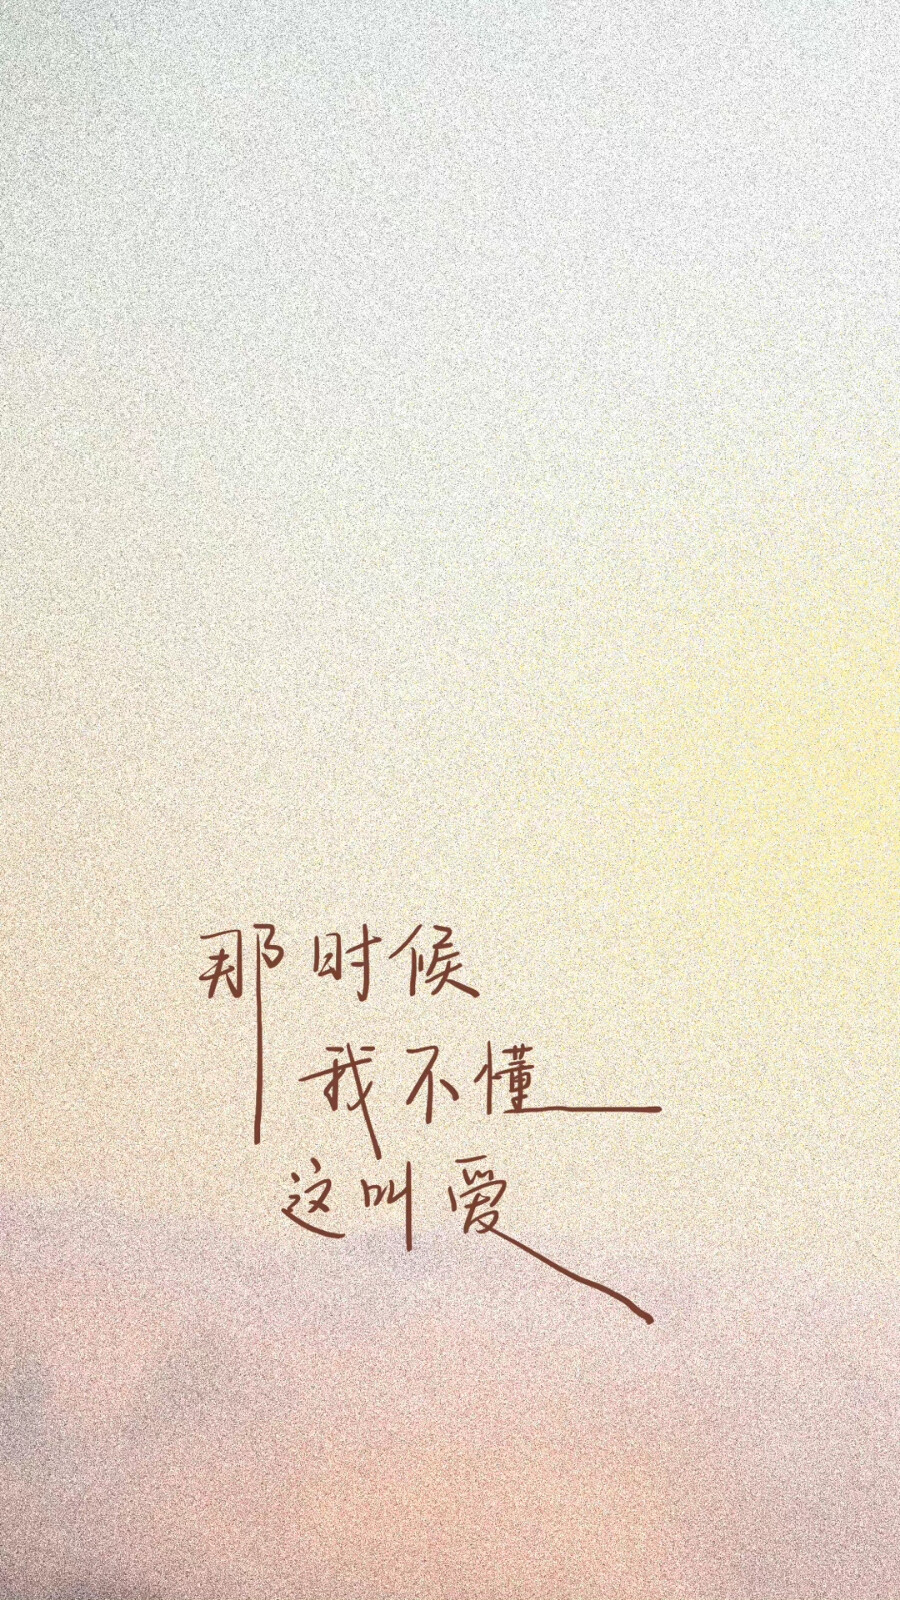 那时候
我不懂
这叫爱